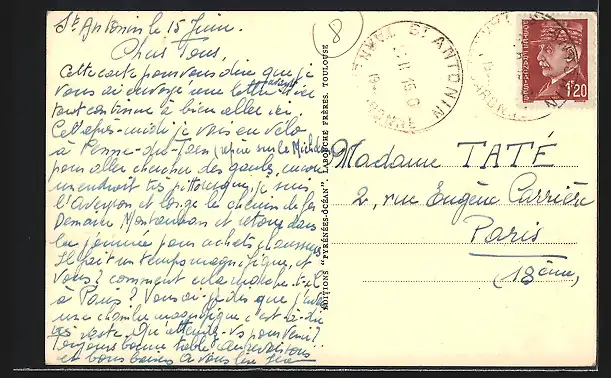 St Antonin le 15 Juin.
Chers Tous,
Cette carte pour vous dire que je
vous ai envoyé une lettre
tout continue à bien aller ici
Cet après-midi je vais en vélo
à Penne-du-Tarn
pour aller chercher des gaules, encore
un endroit très pittoresque, je suis
l'Aveyron et longe le chemin de fer
Demain Montauban et retour dans
la journée pour achats chaussures
Il fait un temps magnifique, et
Vous? comment cela marche-t-il
à Paris? Vous ai-je dit que j'avais
une chambre magnifique c'est-à-dire
vaste. Qu'attendez-vs pour venir?
Toujours bonne table, au revoir tous
et bons baisers à vous
8
EDITIONS "PYRÉNÉES-OCÉAN", LABOUCHE FRÈRES, TOULOUSE
ST ANTONIN
TARN-ET-GARONNE
1F20
Madame TATÉ
2, rue Eugène Carrière
Paris
(18ème)